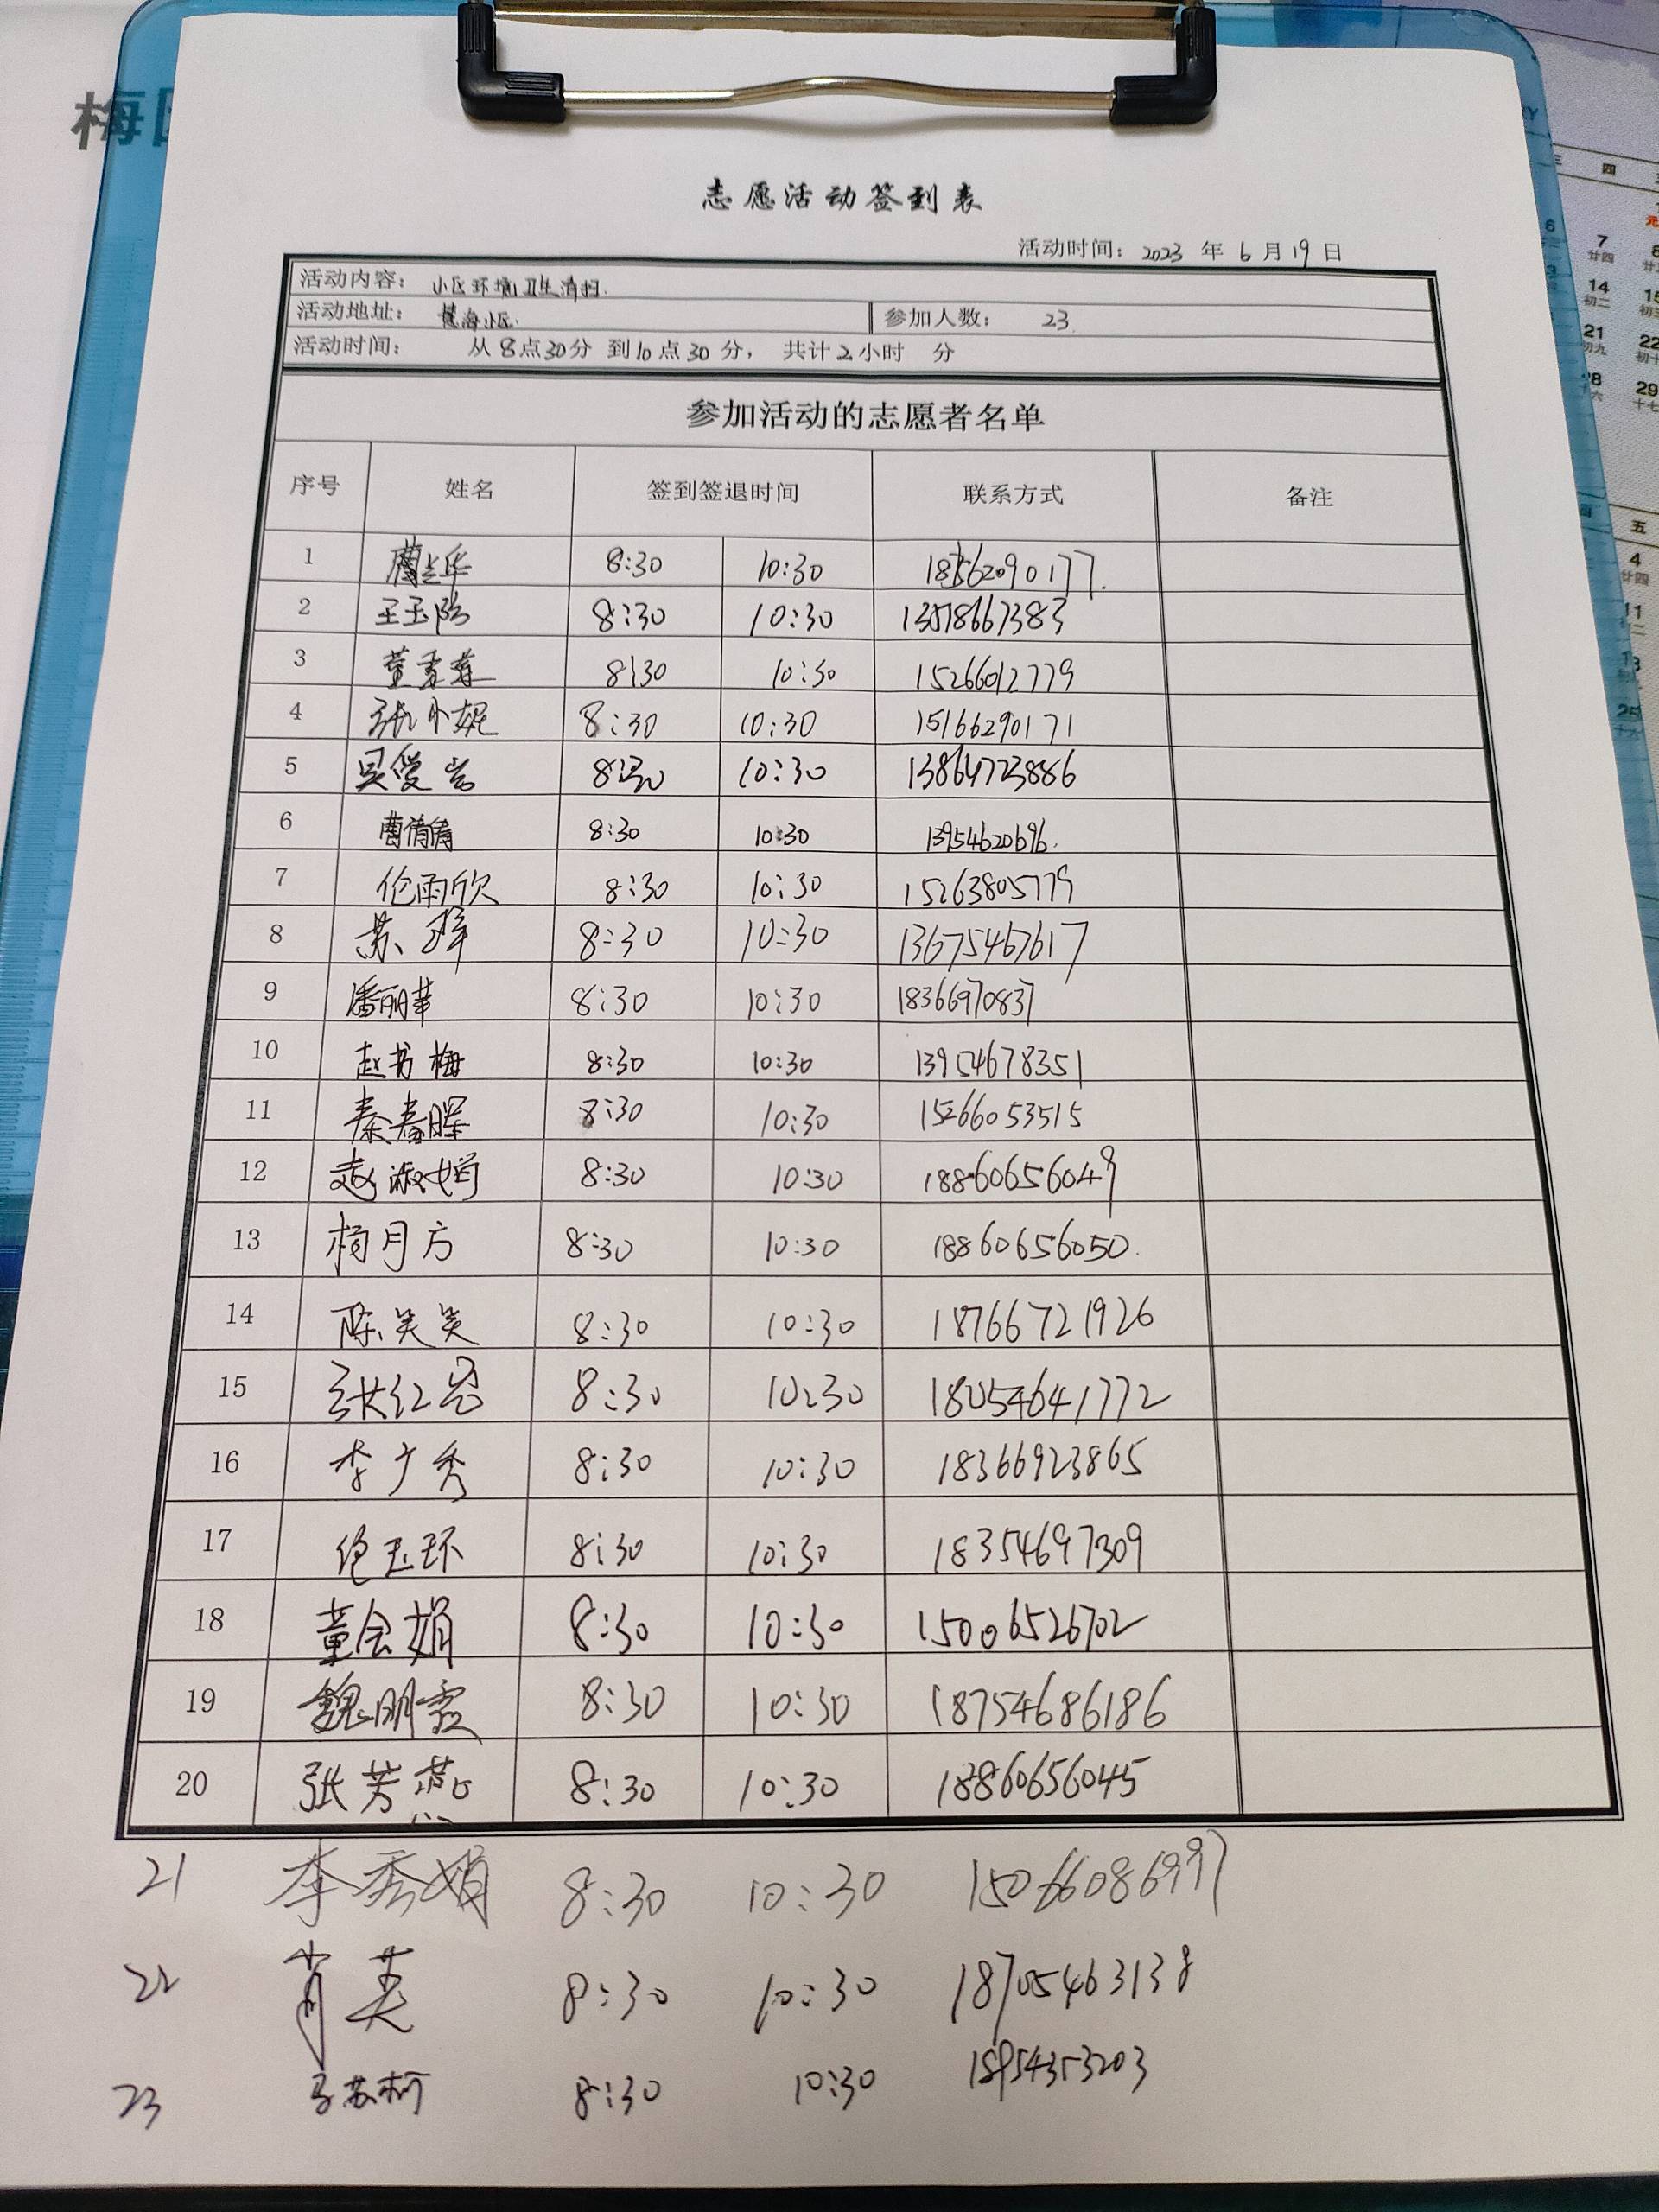 梅园
志愿活动签到表
活动时间：2023 年 6 月 19 日
活动内容：小区环境卫生清扫.
活动地址：景海小区. 参加人数：23
活动时间：从8点30分 到10点30分，共计2小时 分
参加活动的志愿者名单
序号 姓名 签到签退时间 联系方式 备注
1 8:30 10:30 18562090177.
2 王玉珍 8:30 10:30 13518667383
3 董秀莲 8:30 10:30 15266012779
4 张小妮 8:30 10:30 15166290171
5 吴爱岩 8:30 10:30 13864723886
6 曹倩倩 8:30 10:30 13954620696.
7 伦雨欣 8:30 10:30 15263805779
8 苏 8:30 10:30 13675467617
9 潘丽华 8:30 10:30 18366970837
10 赵书梅 8:30 10:30 13954678351
11 秦春晖 8:30 10:30 15266053515
12 赵淑娟 8:30 10:30 18860656049
13 杨月方 8:30 10:30 18860656050.
14 陈笑笑 8:30 10:30 18766721926
15 张红岩 8:30 10:30 18054641772
16 李广秀 8:30 10:30 18366923865
17 绝玉环 8:30 10:30 18354697309
18 董会娟 8:30 10:30 15006526702
19 魏明霞 8:30 10:30 18754686186
20 张芳燕 8:30 10:30 18860656045
21 李秀娟 8:30 10:30 15066086997
22 肖英 8:30 10:30 18705463138
23 马苏柯 8:30 10:30 18954353203